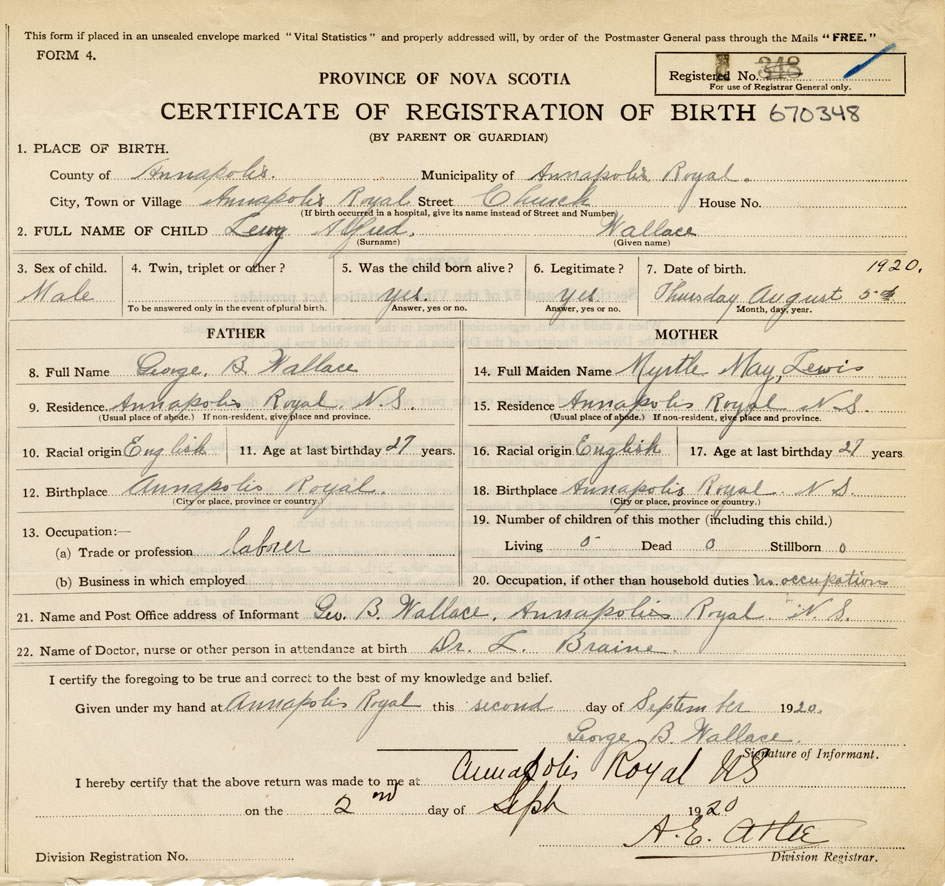 This form if placed in an unsealed envelope marked "Vital Statistics" and properly addressed will, by order of the Postmaster General pass through the Mails "FREE."
FORM 4.
Registered No. 348
For use of Registrar General only.
PROVINCE OF NOVA SCOTIA
CERTIFICATE OF REGISTRATION OF BIRTH 670348
(BY PARENT OR GUARDIAN)
1. PLACE OF BIRTH.
County of Annapolis. Municipality of Annapolis Royal.
City, Town or Village Annapolis Royal Street Church House No.
(If birth occurred in a hospital, give its name instead of Street and Number)
2. FULL NAME OF CHILD Alfred, Wallace
(Surname) (Given name)
3. Sex of child. 4. Twin, triplet or other? 5. Was the child born alive? 6. Legitimate? 7. Date of birth. 1920.
Male yes. yes Thursday August 5
To be answered only in the event of plural birth. Answer, yes or no. Answer, yes or no. Month, day, year.
FATHER MOTHER
8. Full Name George. B. Wallace 14. Full Maiden Name Myrtle May, Lewis
9. Residence. Annapolis Royal. N.S. 15. Residence Annapolis Royal N.S.
(Usual place of abode.) If non-resident, give place and province. (Usual place of abode.) If non-resident, give place and province.
10. Racial origin English 11. Age at last birthday 27 years. 16. Racial origin English 17. Age at last birthday 27 years
12. Birthplace Annapolis Royal. 18. Birthplace Annapolis Royal. N S
(City or place, province or country.) (City or place, province or country.)
13. Occupation:— 19. Number of children of this mother (including this child.)
(a) Trade or profession laborer Living 5 Dead 0 Stillborn 0
(b) Business in which employed. 20. Occupation, if other than household duties no occupation
21. Name and Post Office address of Informant Geo. B. Wallace. Annapolis Royal N.S.
22. Name of Doctor, nurse or other person in attendance at birth Dr. L. Braine.
I certify the foregoing to be true and correct to the best of my knowledge and belief.
Given under my hand at Annapolis Royal this second day of September 1920.
George B Wallace.
Signature of Informant.
I hereby certify that the above return was made to me at Annapolis Royal NS
on the 2nd day of Sept 1920
A. E. Atlee
Division Registration No. Division Registrar.